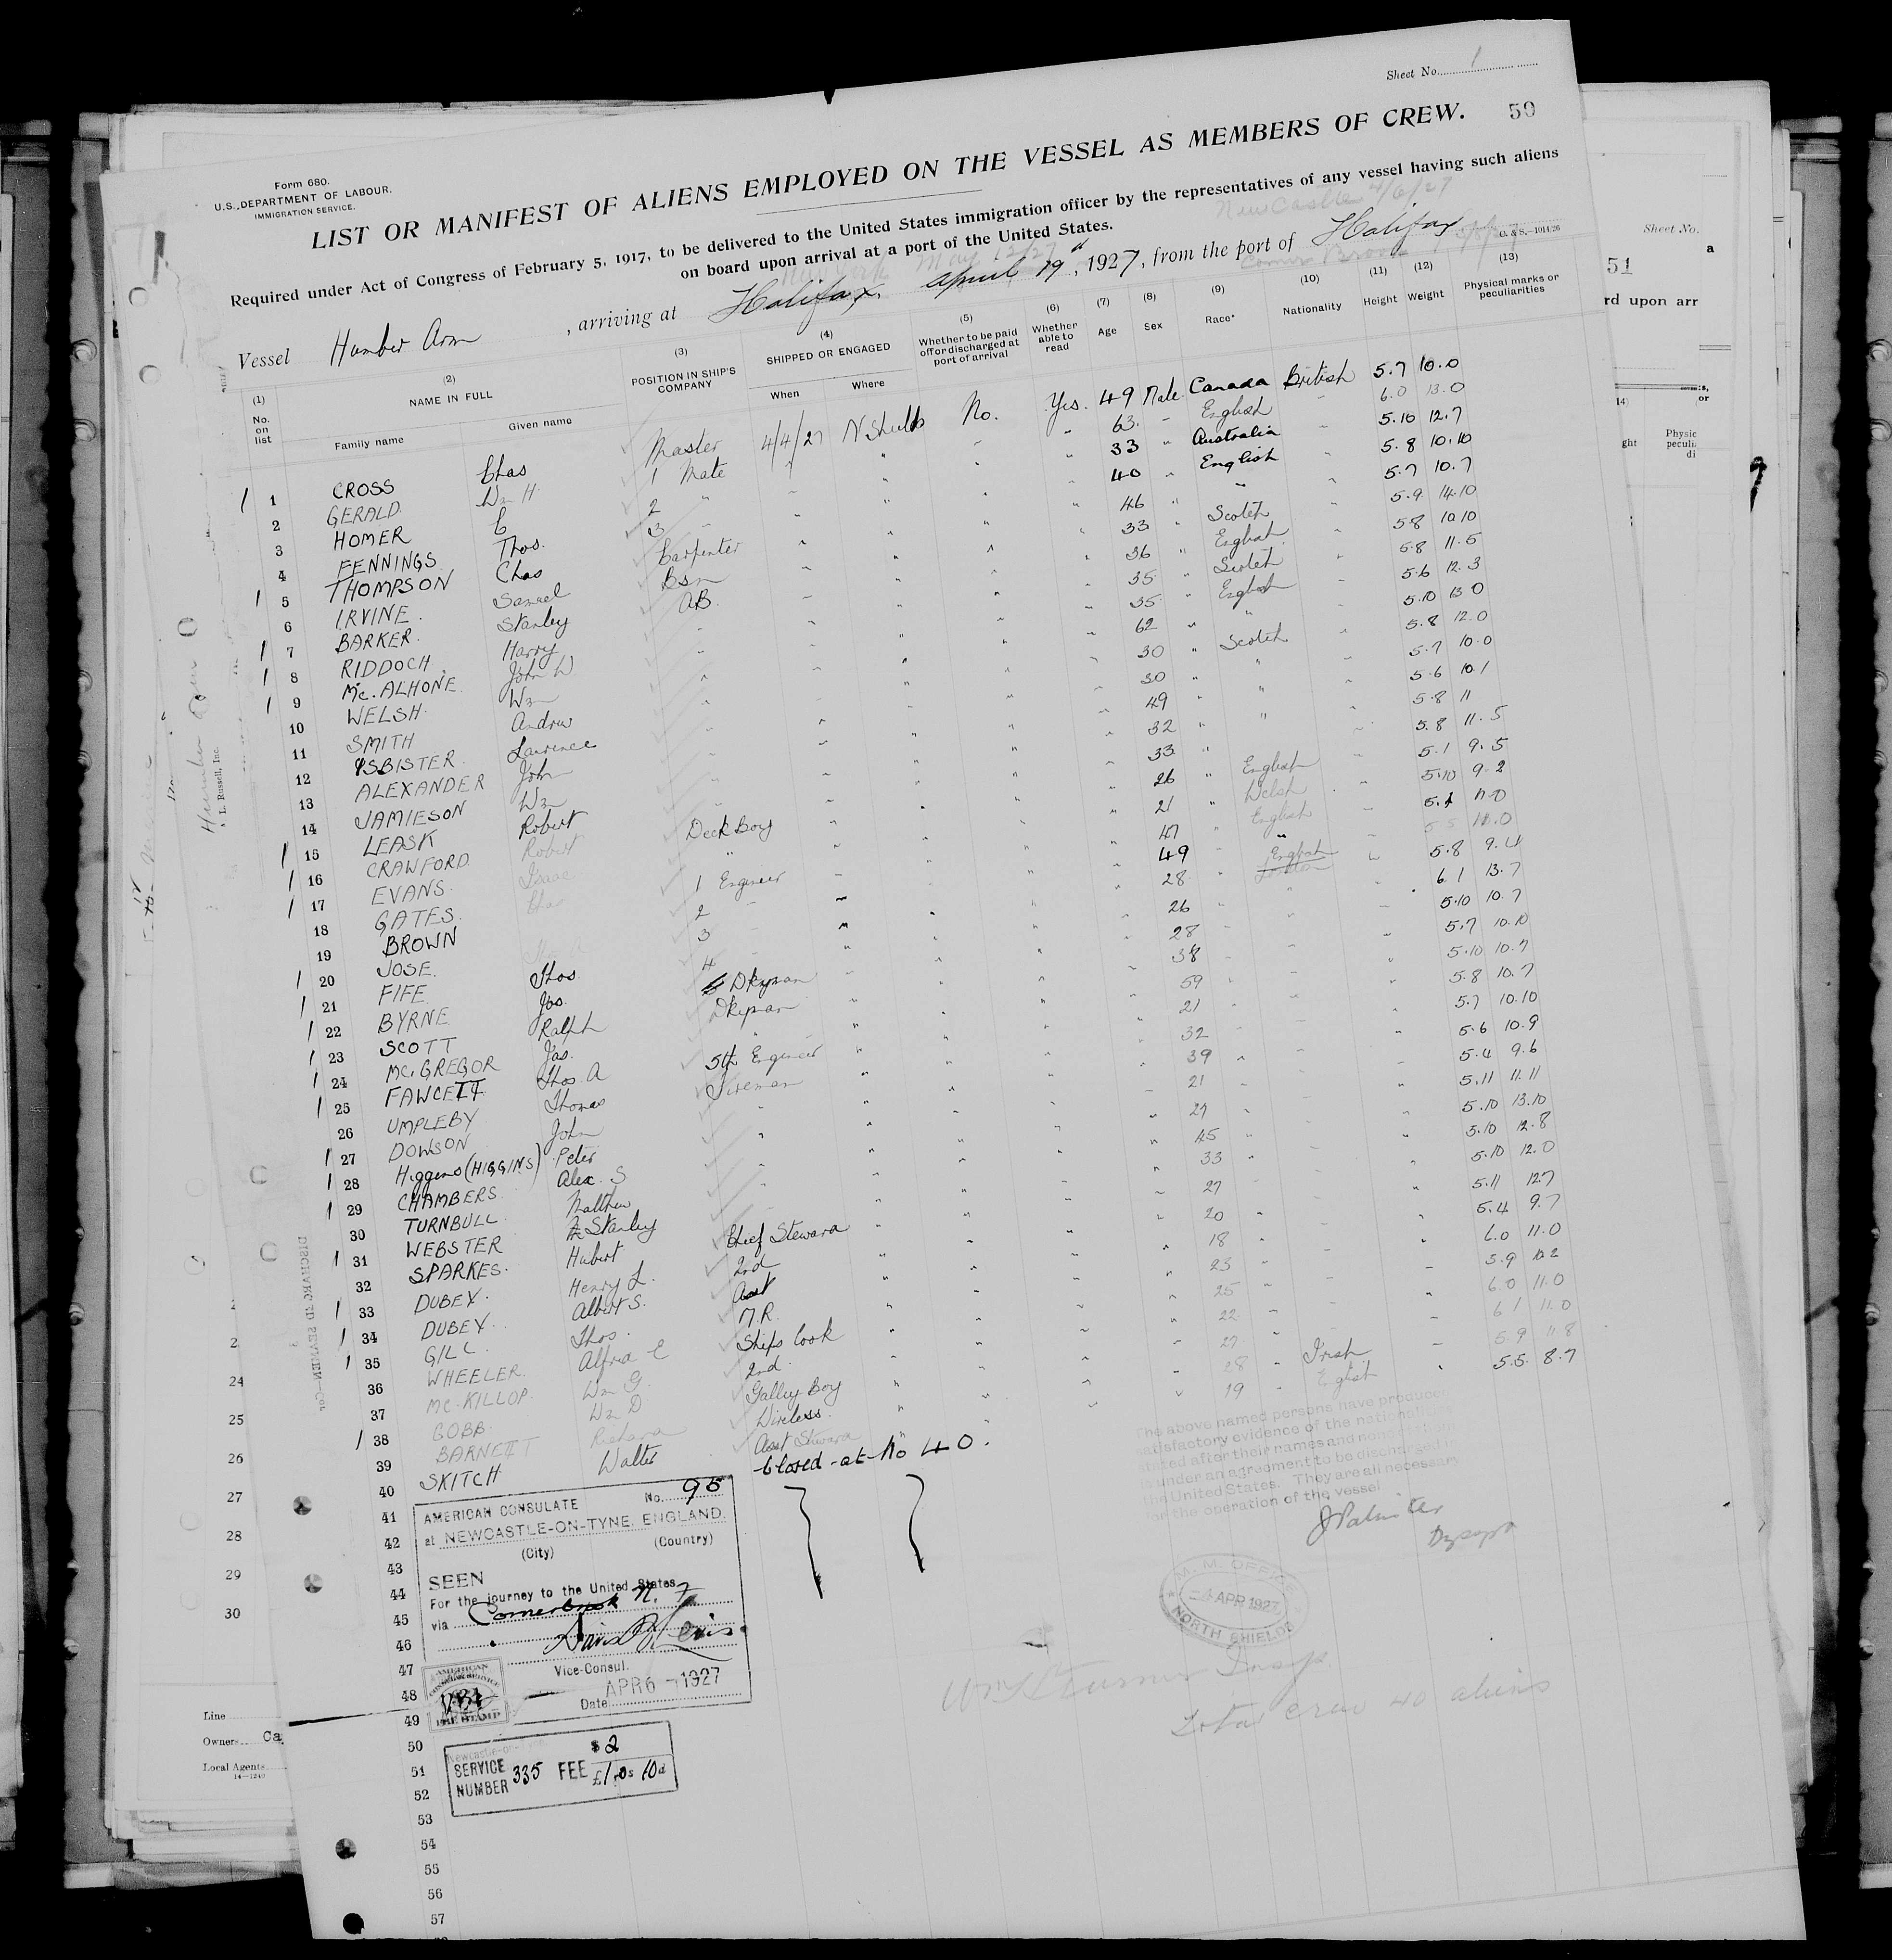 Sheet No. 1
50
Form 680.
U.S. DEPARTMENT OF LABOUR.
IMMIGRATION SERVICE.
LIST OR MANIFEST OF ALIENS EMPLOYED ON THE VESSEL AS MEMBERS OF CREW.
Required under Act of Congress of February 5, 1917, to be delivered to the United States immigration officer by the representatives of any vessel having such aliens
on board upon arrival at a port of the United States.
Newcastle 4/6/27
Vessel Humber Arm, arriving at Halifax. April 19, 1927, from the port of Halifax
(1) No. on list
(2) NAME IN FULL
Family name Given name
(3) POSITION IN SHIP'S COMPANY
(4) SHIPPED OR ENGAGED
When Where
(5) Whether to be paid off or discharged at port of arrival
(6) Whether able to read
(7) Age
(8) Sex
(9) Race*
(10) Nationality
(11) Height
(12) Weight
(13) Physical marks or peculiarities
1 CROSS Chas Master 4/4/27 N Shields No. Yes. 49 Male Canada British 5.7 10.0
2 GERALD Wm H. 1 Mate " 63 " English " 6.0 13.0
3 HOMER C 2 " 33 " Australia " 5.10 12.7
4 FENNINGS Thos. 3 " 40 " English " 5.8 10.10
5 THOMPSON Chas Carpenter 46 " " 5.7 10.7
6 IRVINE Samuel Bsn 33 " Scotch 5.9 14.10
7 BARKER Stanley AB. 36 " English 5.8 10.10
8 RIDDOCH Harry " 35 " Scotch 5.8 11.5
9 Mc.ALHONE John W " 35 " English 5.6 12.3
10 WELSH Wm " 62 " " 5.10 13.0
11 SMITH Andrew " 30 " Scotch 5.8 12.0
12 ISBISTER Laurence " 30 " " 5.7 10.0
13 ALEXANDER John " 49 " " 5.6 10.1
14 JAMIESON Wm " 32 " " 5.8 11
15 LEASK Robert " 33 " 5.8 11.5
16 CRAWFORD Robert Deck Boy 26 " English 5.1 9.5
17 EVANS Isaac " 21 " Welsh 5.10 9.2
18 GATES Chas 1 Engineer 47 " English 11.0
19 BROWN 2 " 49 " English
20 JOSE 3 " 28 " 5.8 9.4
21 FIFE Thos 4 26 " 6.1 13.7
22 BYRNE Jos. Dkyman 28 " 5.10 10.7
23 SCOTT Ralph Dkyman 38 " 5.7 10.10
24 Mc.GREGOR Jas. " 59 " 5.10 10.7
25 FAWCETT Thos A 5th Engineer 21 " 5.8 10.7
26 UMPLEBY Thomas Fireman 32 " 5.7 10.10
27 DOWSON John " 39 " 5.6 10.9
28 Higgens (HIGGINS) Peter " 21 " 5.4 9.6
29 CHAMBERS Alex. S " 27 " 5.11 11.11
30 TURNBULL Matthew " 45 " 5.10 13.10
31 WEBSTER Stanley " 33 " 5.10 12.8
32 SPARKES. Hubert Chief Steward 27 " 5.10 12.0
33 DUBEY. Henry L. 2nd 20 " 5.11 12.7
34 DUBEY. Albert S. Asst 18 " 5.4 9.7
35 GILL Thos. M.R. 23 " 6.0 11.0
36 WHEELER. Alfred E Ships Cook 25 " 5.9 10.2
37 Mc.KILLOP. Wm G. 2nd. 22 " 6.0 11.0
38 COBB. Wm D Galley Boy 27 " 6.1 11.0
39 BARNETT Richard Wireless. 28 " Irish 5.9 11.8
40 SKITCH Walter Asst Steward 19 " English 5.5. 8.7
41
closed - at - No 40.
42
43
44
45
46
47
48
49
50
51
52
53
54
55
56
57
AMERICAN CONSULATE No. 95
at NEWCASTLE-ON-TYNE, ENGLAND.
(City) (Country)
SEEN
For the journey to the United States
via Cornerbrook N.F
Vice-Consul.
Date APR 6 - 1927
AMERICAN CONSULAR SERVICE
FEE STAMP
Newcastle-on-Tyne
SERVICE NUMBER 335 FEE $2
£1.0s 10d
The above named persons have produced
satisfactory evidence of the nationalities
stated after their names and none of them
under an agreement to be discharged in
the United States. They are all necessary
for the operation of the vessel
J Palmiter
Dysupt
M.M. OFFICE
APR 1927
NORTH SHIELDS
Total crew 40 aliens
Sheet No.
51
rd upon arr
A. L. Russell, Inc
DISCHARGED SEAMEN
24
25
26
27
28
29
30
Line
Owners Ca
Local Agents
14-1240